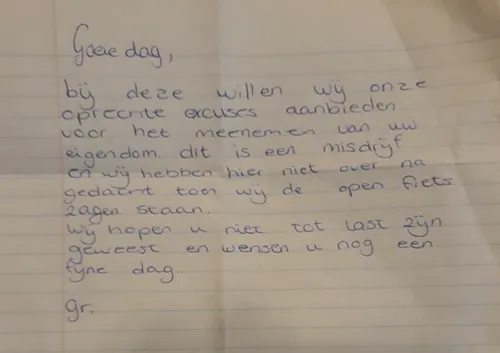 Goeie dag,
bij deze willen wij onze
oprechte excuses aanbieden
voor het meenemen van uw
eigendom. dit is een misdrijf
en wij hebben hier niet over na
gedacht toen wij de open fiets
zagen staan.
Wij hopen u niet tot last zijn
geweest en wensen u nog een
fyne dag.
gr.